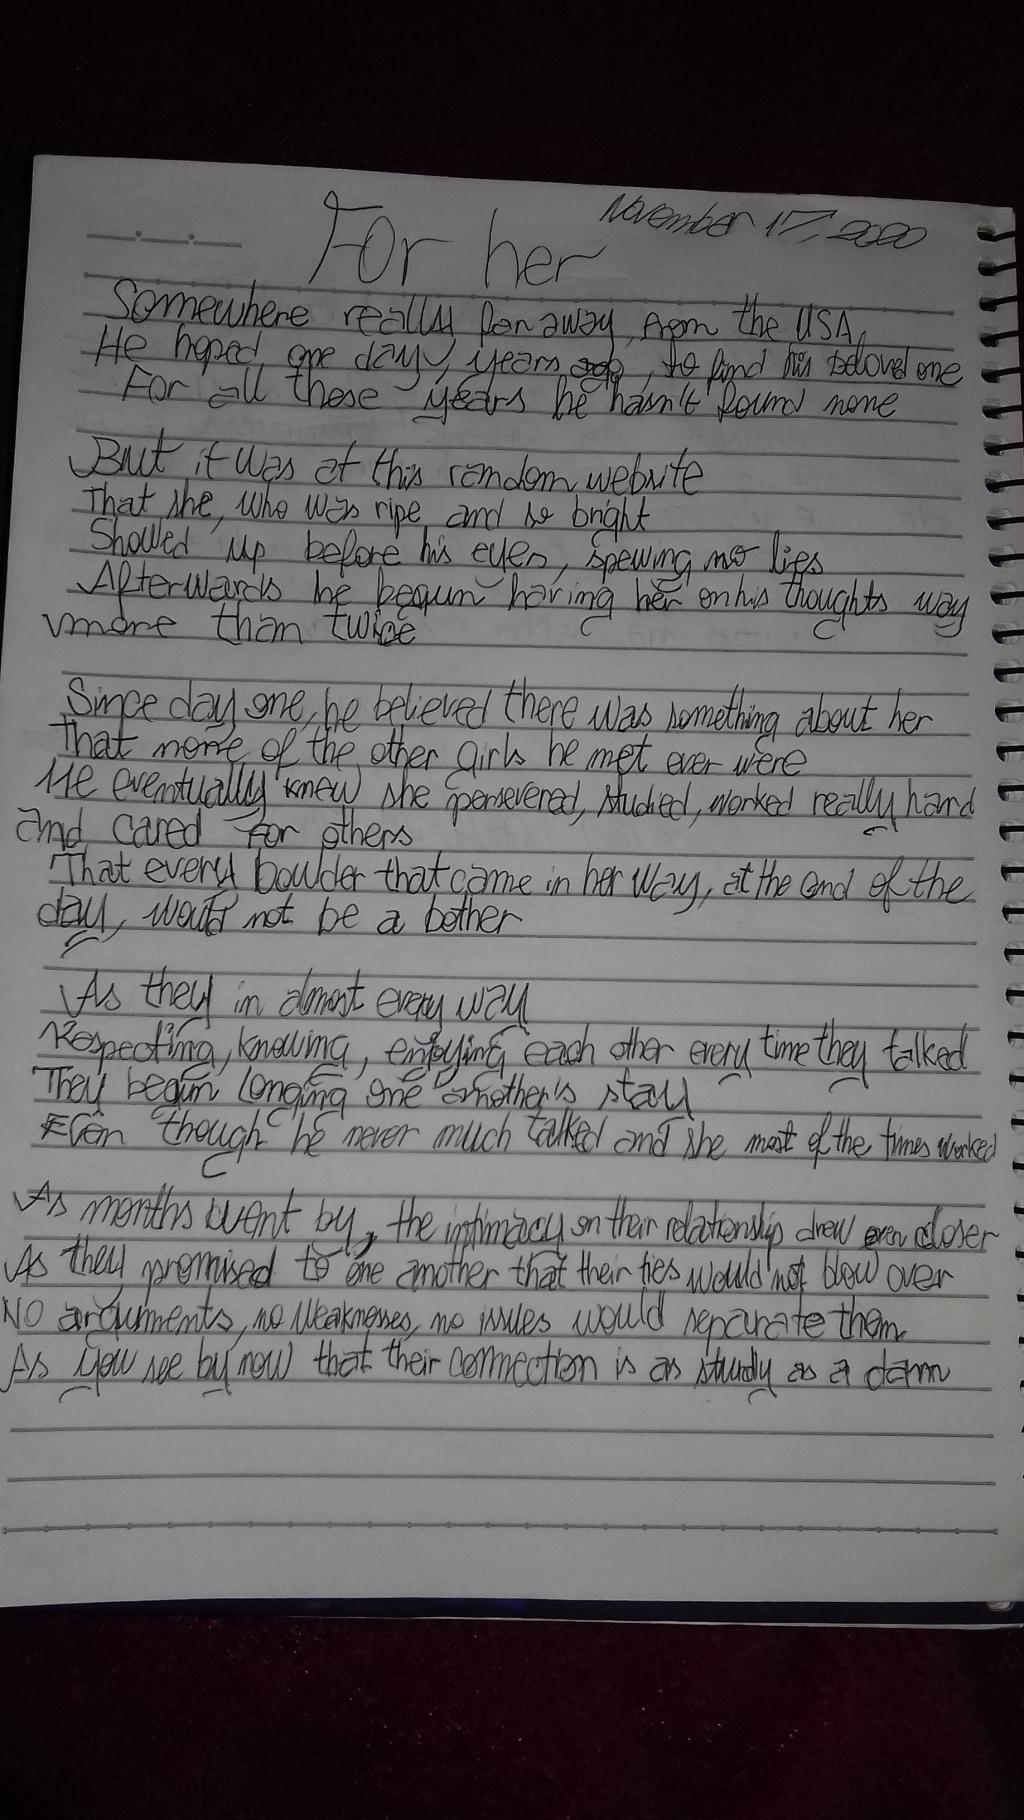 November 17, 2020
For her
Somewhere really far away, from the USA,
He hoped one day, years ago, to find his beloved one
For all these years he hasn't found none
But it was at this random website
That she, who was ripe and so bright
Showed up before his eyes, spewing no lies
Afterwards he begun having her on his thoughts way
more than twice
Since day one, he believed there was something about her
That none of the other girls he met ever were
He eventually knew she persevered, studied, worked really hard
and cared for others
That every boulder that came in her way, at the end of the
day, would not be a bother
As they in almost every way
Respecting, knowing, enjoying each other every time they talked
They begun longing one another's stay
Even though he never much talked and she most of the times worked
As months went by, the intimacy on their relationship drew even closer
As they promised to one another that their ties would not blow over
No arguments, no weaknesses, no issues would separate them
As you see by now that their connection is as sturdy as a dam